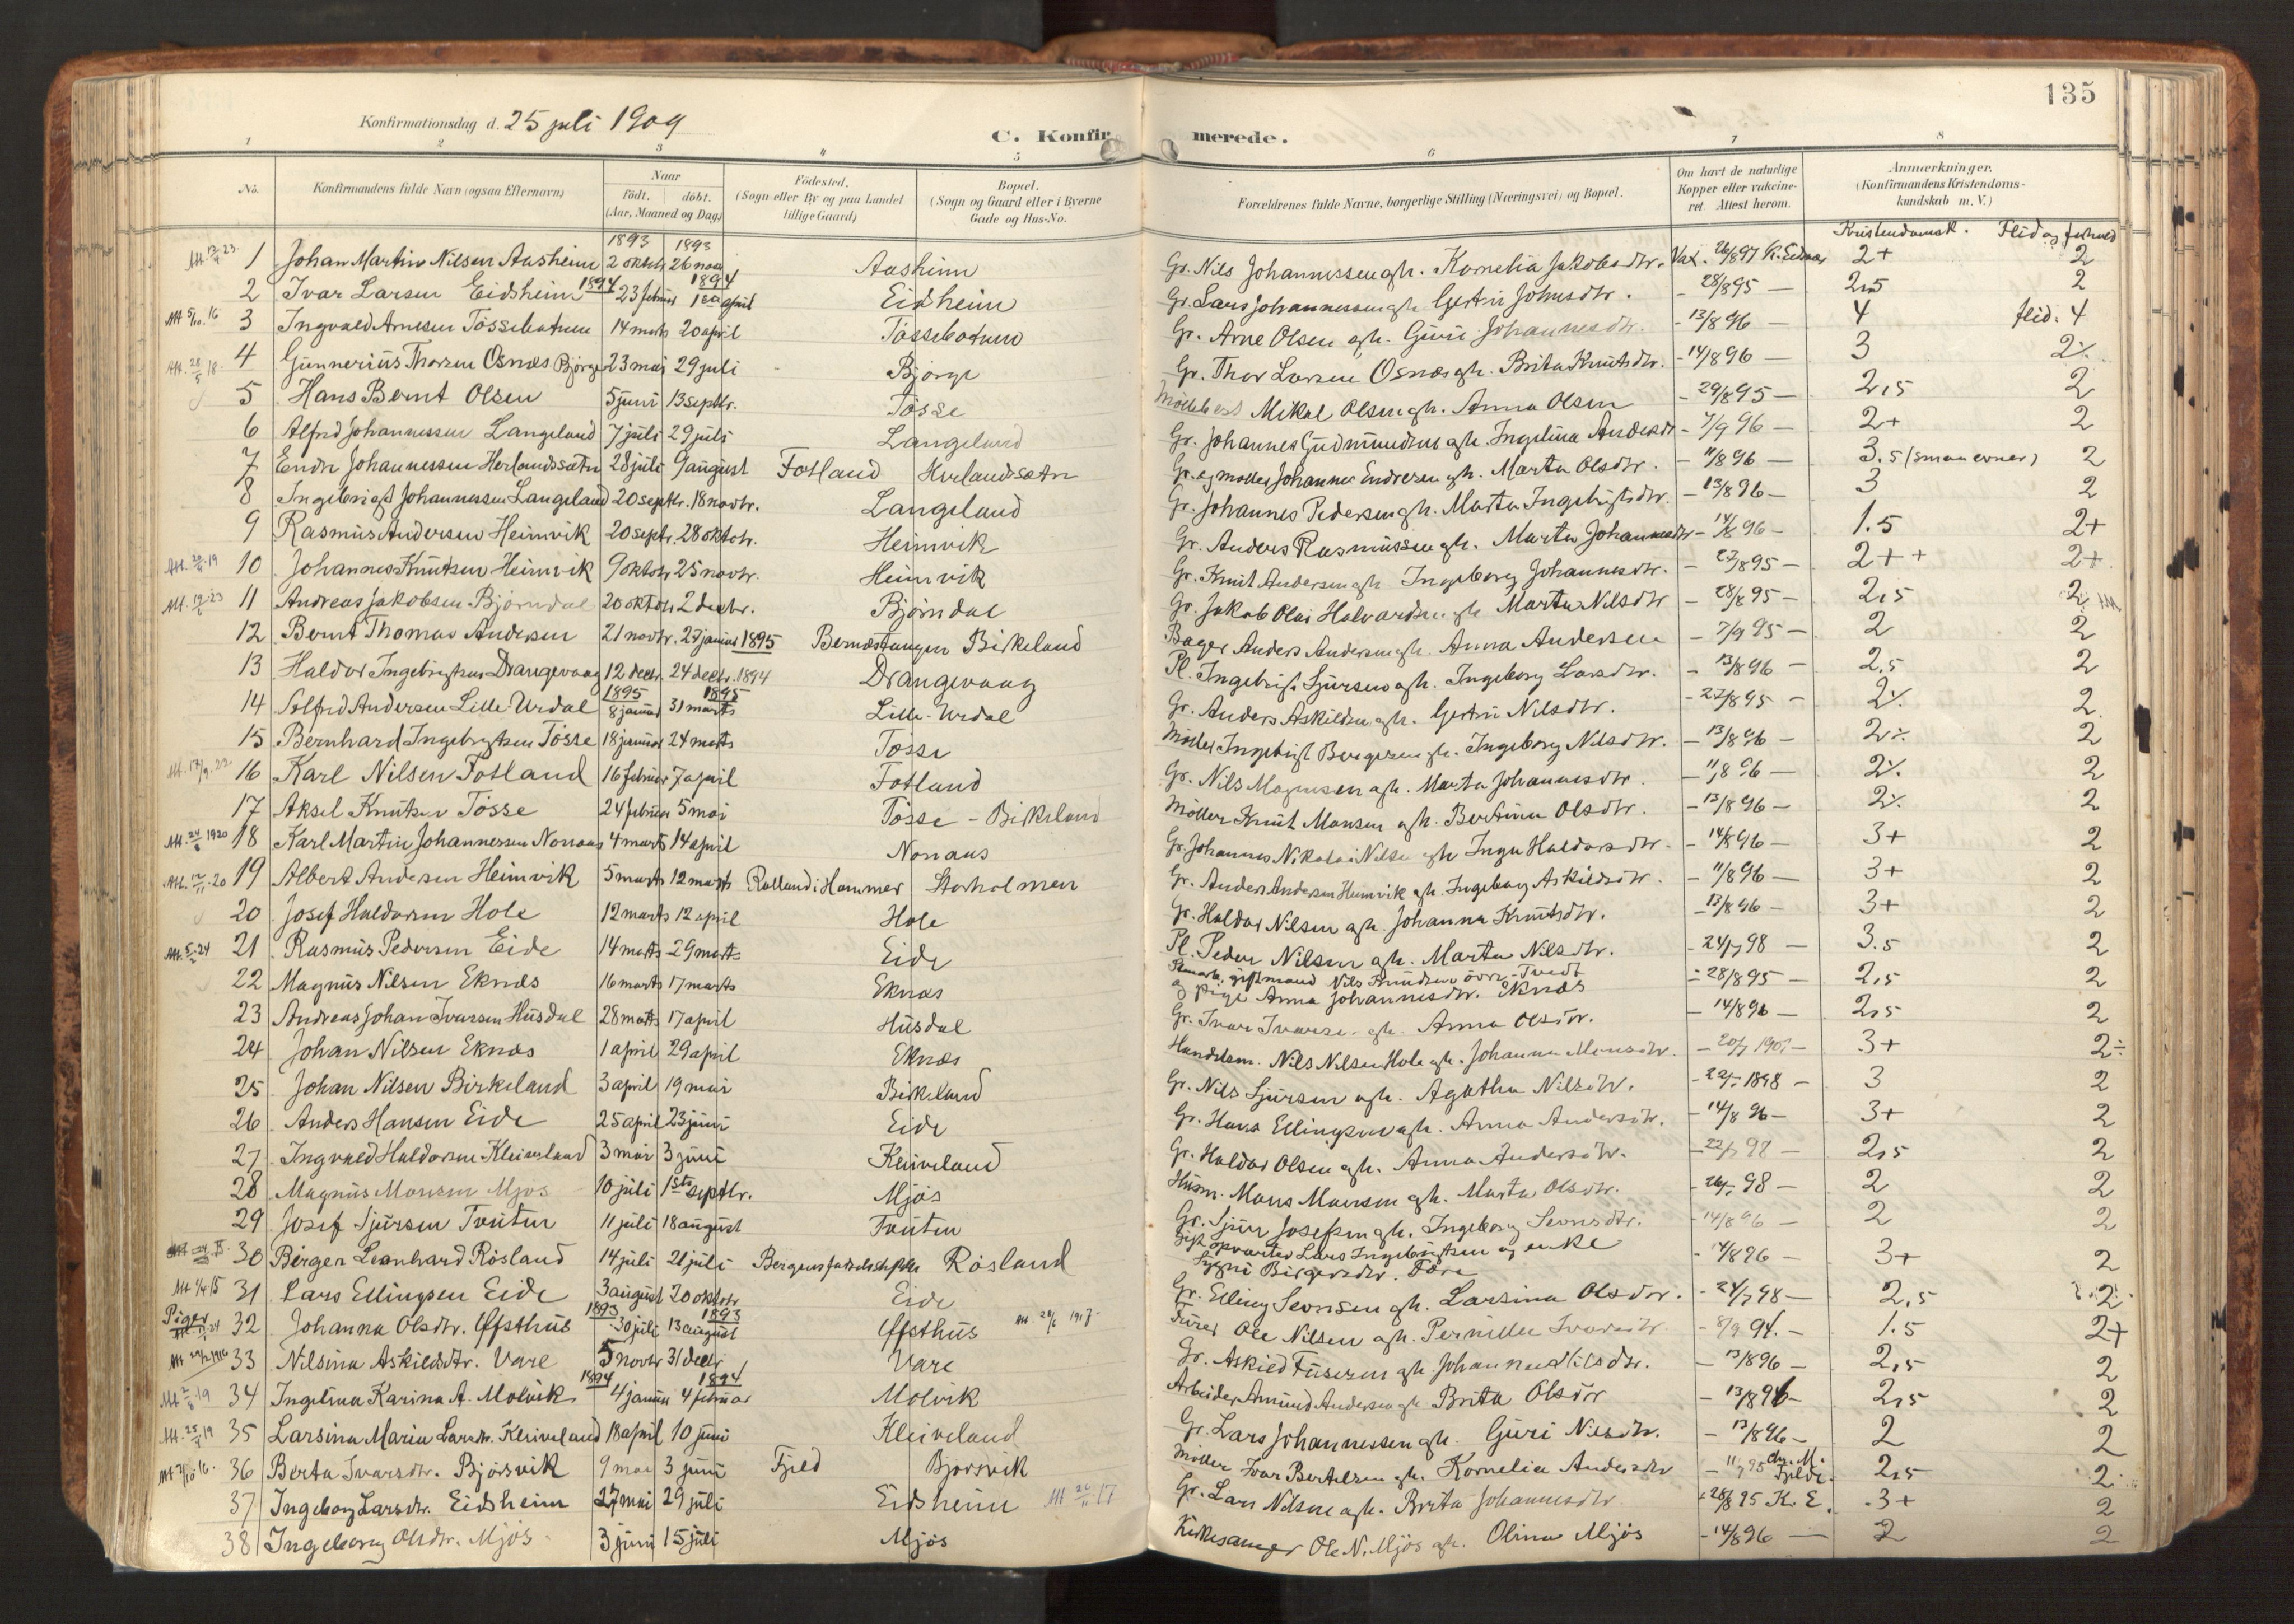 135
Konfirmationsdag d. 25 juli 1909
C. Konfirmerede.
1 2 3 4 5 6 7 8
No.
Konfirmandens fulde Navn (ogsaa Efternavn)
Naar
födt. döbt.
(Aar, Maaned og Dag)
Födested.
(Sogn eller By og paa Landet
tillige Gaard)
Bopæl.
(Sogn og Gaard eller i Byerne
Gade og Hus-No.
Forældrenes fulde Navne, borgerlige Stilling (Næringsvei) og Bopæl.
Om havt de naturlige
Kopper eller vakcine-
ret. Attest herom.
Anmærkninger.
(Konfirmandens Kristendoms-
kundskab m. V.)
Kristendomsk. Flid og forhold
1893 1893
1 Johan Martin Nilsen Aasheim 2 oktobr 26 nov Aasheim Gr. Nils Johannessen gh. Kornelia Jakobsdtr. Vax. 26/8 97 2+ 2
1894 1894
2 Ivar Larsen Eidsheim 23 februar 1ste april Eidsheim Gr. Lars Johannessen gh. Gjertrü Johnsdtr. - 28/8 95 - 2,5 2
3 Ingvald Arnesen Tössebotnen 14 marts 20 april Tössebotnen Gr. Arne Olsen gh. Guri Johannesdtr. - 13/8 96 - 4 flid. 4
4 Gunnerius Thorsen Osnæs Bjørge 23 mai 29 juli Björge Gr. Thor Larsen Osnæs gh. Brita Knutsdtr. - 14/8 96 - 3 2%
5 Hans Bernt Olsen 5 juni 13 septbr. Tösse Mikal Olsen gh. Anna Olsen - 29/8 95 - 2,5 2
6 Alfred Johannessen Langeland 7 juli 29 juli Langeland Gr. Johannes Gudmundsen gh. Ingelina Andersdtr - 7/9 96 - 2+ 2
7 Endre Johannessen Herlandssætr 28 juli 9 august Fotland Herlandssætr Gr. og møller Johannes Endresen gh. Marta Olsdtr. - 11/8 96 - 3.5 (smaa evner) 2
8 Ingebrigt Johannessen Langeland 20 septbr. 18 novbr. Langeland Gr. Johannes Pedersen gh. Marta Ingebrigtsdtr. - 13/8 96 - 3 2
9 Rasmus Andersen Heimvik 20 septr. 28 oktobr. Heimvik Gr. Anders Rasmussen gh. Marta Johannesdtr - 14/8 96 - 1.5 2+
10 Johannes Knutsen Heimvik 9 oktobr 25 novbr. Heimvik Gr. Knut Andersen gh Ingeborg Johannesdtr. - 27/8 95 - 2++ 2+
11 Andreas Jakobsen Björndal 20 oktobr 2 decbr. Björndal Gr. Jakob Olai Halvardsen gh Marta Nilsdtr - 28/8 95 - 2,5 2
12 Bernt Thomas Andersen 21 novbr. 27 januar 1895 Bernæstangen Birkeland Bager Anders Andersen gh. Anna Andersen - 7/9 95 - 2 2
13 Haldor Ingebrigtsen Drangevaag 12 decbr. 24 decbr. 1894 Drangevaag Pl. Ingebrigt Sjursen gh. Ingeborg Larsdtr. - 13/8 96 - 2,5 2
1895 1895
14 Alfred Andersen Lille-Urdal 8 januar 31 marts Lille-Urdal Gr. Anders Askildsen gh. Gjertrü Nilsdtr. - 27/8 95 - 2% 2
15 Bernhard Ingebrigtsen Tösse 18 januar 24 marts Tösse Møller Ingebrigt Bergesen gh. Ingeborg Nilsdtr. - 13/8 96 - 2% 2
16 Karl Nilsen Fotland 16 februar 7 april Fotland Gr. Nils Magnesen gh. Marta Johannesdtr. - 11/8 96 - 2% 2
17 Aksel Knutsen Tösse 24 februar 5 mai Tösse - Birkeland Møller Knut Monsen gh. Bertina Olsdtr. - 13/8 96 - 2% 2
18 Karl Martin Johannessen Nonaas 4 marts 14 april Nonaas Gr. Johannes Nikolai Nilsen gh Inga Haldorsdtr. - 14/8 96 - 3+ 2
19 Albert Andersen Heimvik 5 marts 12 marts Rolland i Hammer Storholmen Gr. Anders Andersen Heimvik gh. Ingeborg Askildsdtr. - 11/8 96 - 3+ 2
20 Josef Haldorsen Hole 12 marts 12 april Hole Gr. Haldor Nilsen gh. Johanna Knutsdtr. - 13/8 96 - 3+ 2
21 Rasmus Pedersen Eide 14 marts 29 marts Eide Pl. Peder Nilsen gh. Marta Nilsdtr. - 24/7 98 - 3.5 2
22 Magnus Nilsen Eknæs 16 marts 17 marts Eknæs giftmand Nils Knudsen övre-Tvedt - 28/8 95 - 2,5 2
og pige Anna Johannesdtr. Eknæs
23 Andreas Johan Ivarsen Husdal 28 marts 17 april Husdal Gr. Ivar Ivarsen gh. Anna Olsdtr. - 14/8 96 - 2,5 2
24 Johan Nilsen Eknæs 1 april 29 april Eknæs Handelsm. Nils Nilsen Hole gh. Johanna Monsdtr. 3+ 2÷
25 Johan Nilsen Birkeland 3 april 19 mai Birkeland Gr. Nils Sjursen gh. Agatha Nilsdtr. - 22/7 1898 - 3 2
26 Anders Hansen Eide 25 april 23 juni Eide Gr. Hans Ellingsen gh. Anna Andersdtr. - 14/8 96 - 3+ 2
27 Ingvald Haldorsen Kleiveland 3 mai 3 juni Kleiveland Gr. Haldor Olsen gh. Anna Andersdtr. - 22/7 98 - 2,5 2
28 Magnus Monsen Mjøs 10 juli 1ste septbr. Mjös Husm. Mons Monsen gh. Marta Olsdtr. - 26/7 98 - 2 2
29 Josef Sjursen Tveiten 11 juli 18 august Tveiten Gr. Sjur Josefsen gh. Ingeborg Seversdtr. - 14/8 96 - 2 2
30 Birger Leonhard Rösland 14 juli 21 juli Rösland opvarter Lars Ingebrigtsen og enke - 14/8 96 - 3+ 2
Birgersdtr. Före
31 Lars Ellingsen Eide 3 august 20 oktobr Eide Gr. Elling Severinsen gh. Larsina Olsdtr. - 24/7 98 - 2,5 2
Piger 1893 1893
32 Johanna Olsdtr. Ofsthus 30 juli 13 august Ofsthus Ole Nilsen gh. Pernille Ivarsdtr - 8/9 94. - 1.5 2+
33 Nilsina Askildsdtr. Vare 5 novbr 31 decbr Vare Gr. Askild Fusesen gh Johanna Nilsdtr. - 13/8 96 - 2,5 2
1894 1894
34 Ingelina Karina A. Molvik 4 januar 4 februar Molvik Arbeider Amund Andersen gh Brita Olsdtr - 13/8 96 - 2,5 2
35 Larsina Maria Larsdtr. Kleiveland 18 april 10 juni Kleiveland Gr. Lars Johannessen gh. Guri Nilsdtr. - 13/8 96 - 2 2
36 Berta Ivarsdtr. Björsvik 9 mai 3 juni Fjeld Bjørsvik Møller Ivar Bertelsen gh. Kornelia Andersdtr 2,5 2
37 Ingeborg Larsdtr. Eidsheim 27 mai 29 juli Eidsheim Gr. Lars Nilsen gh. Brita Johannesdtr. 28/8 95 K. E. 3+ 2
38 Ingeborg Olsdtr. Mjös 3 juni 15 juli Mjös Kirkesanger Ole N. Mjös gh. Olina Mjös - 14/8 96 - 2 2